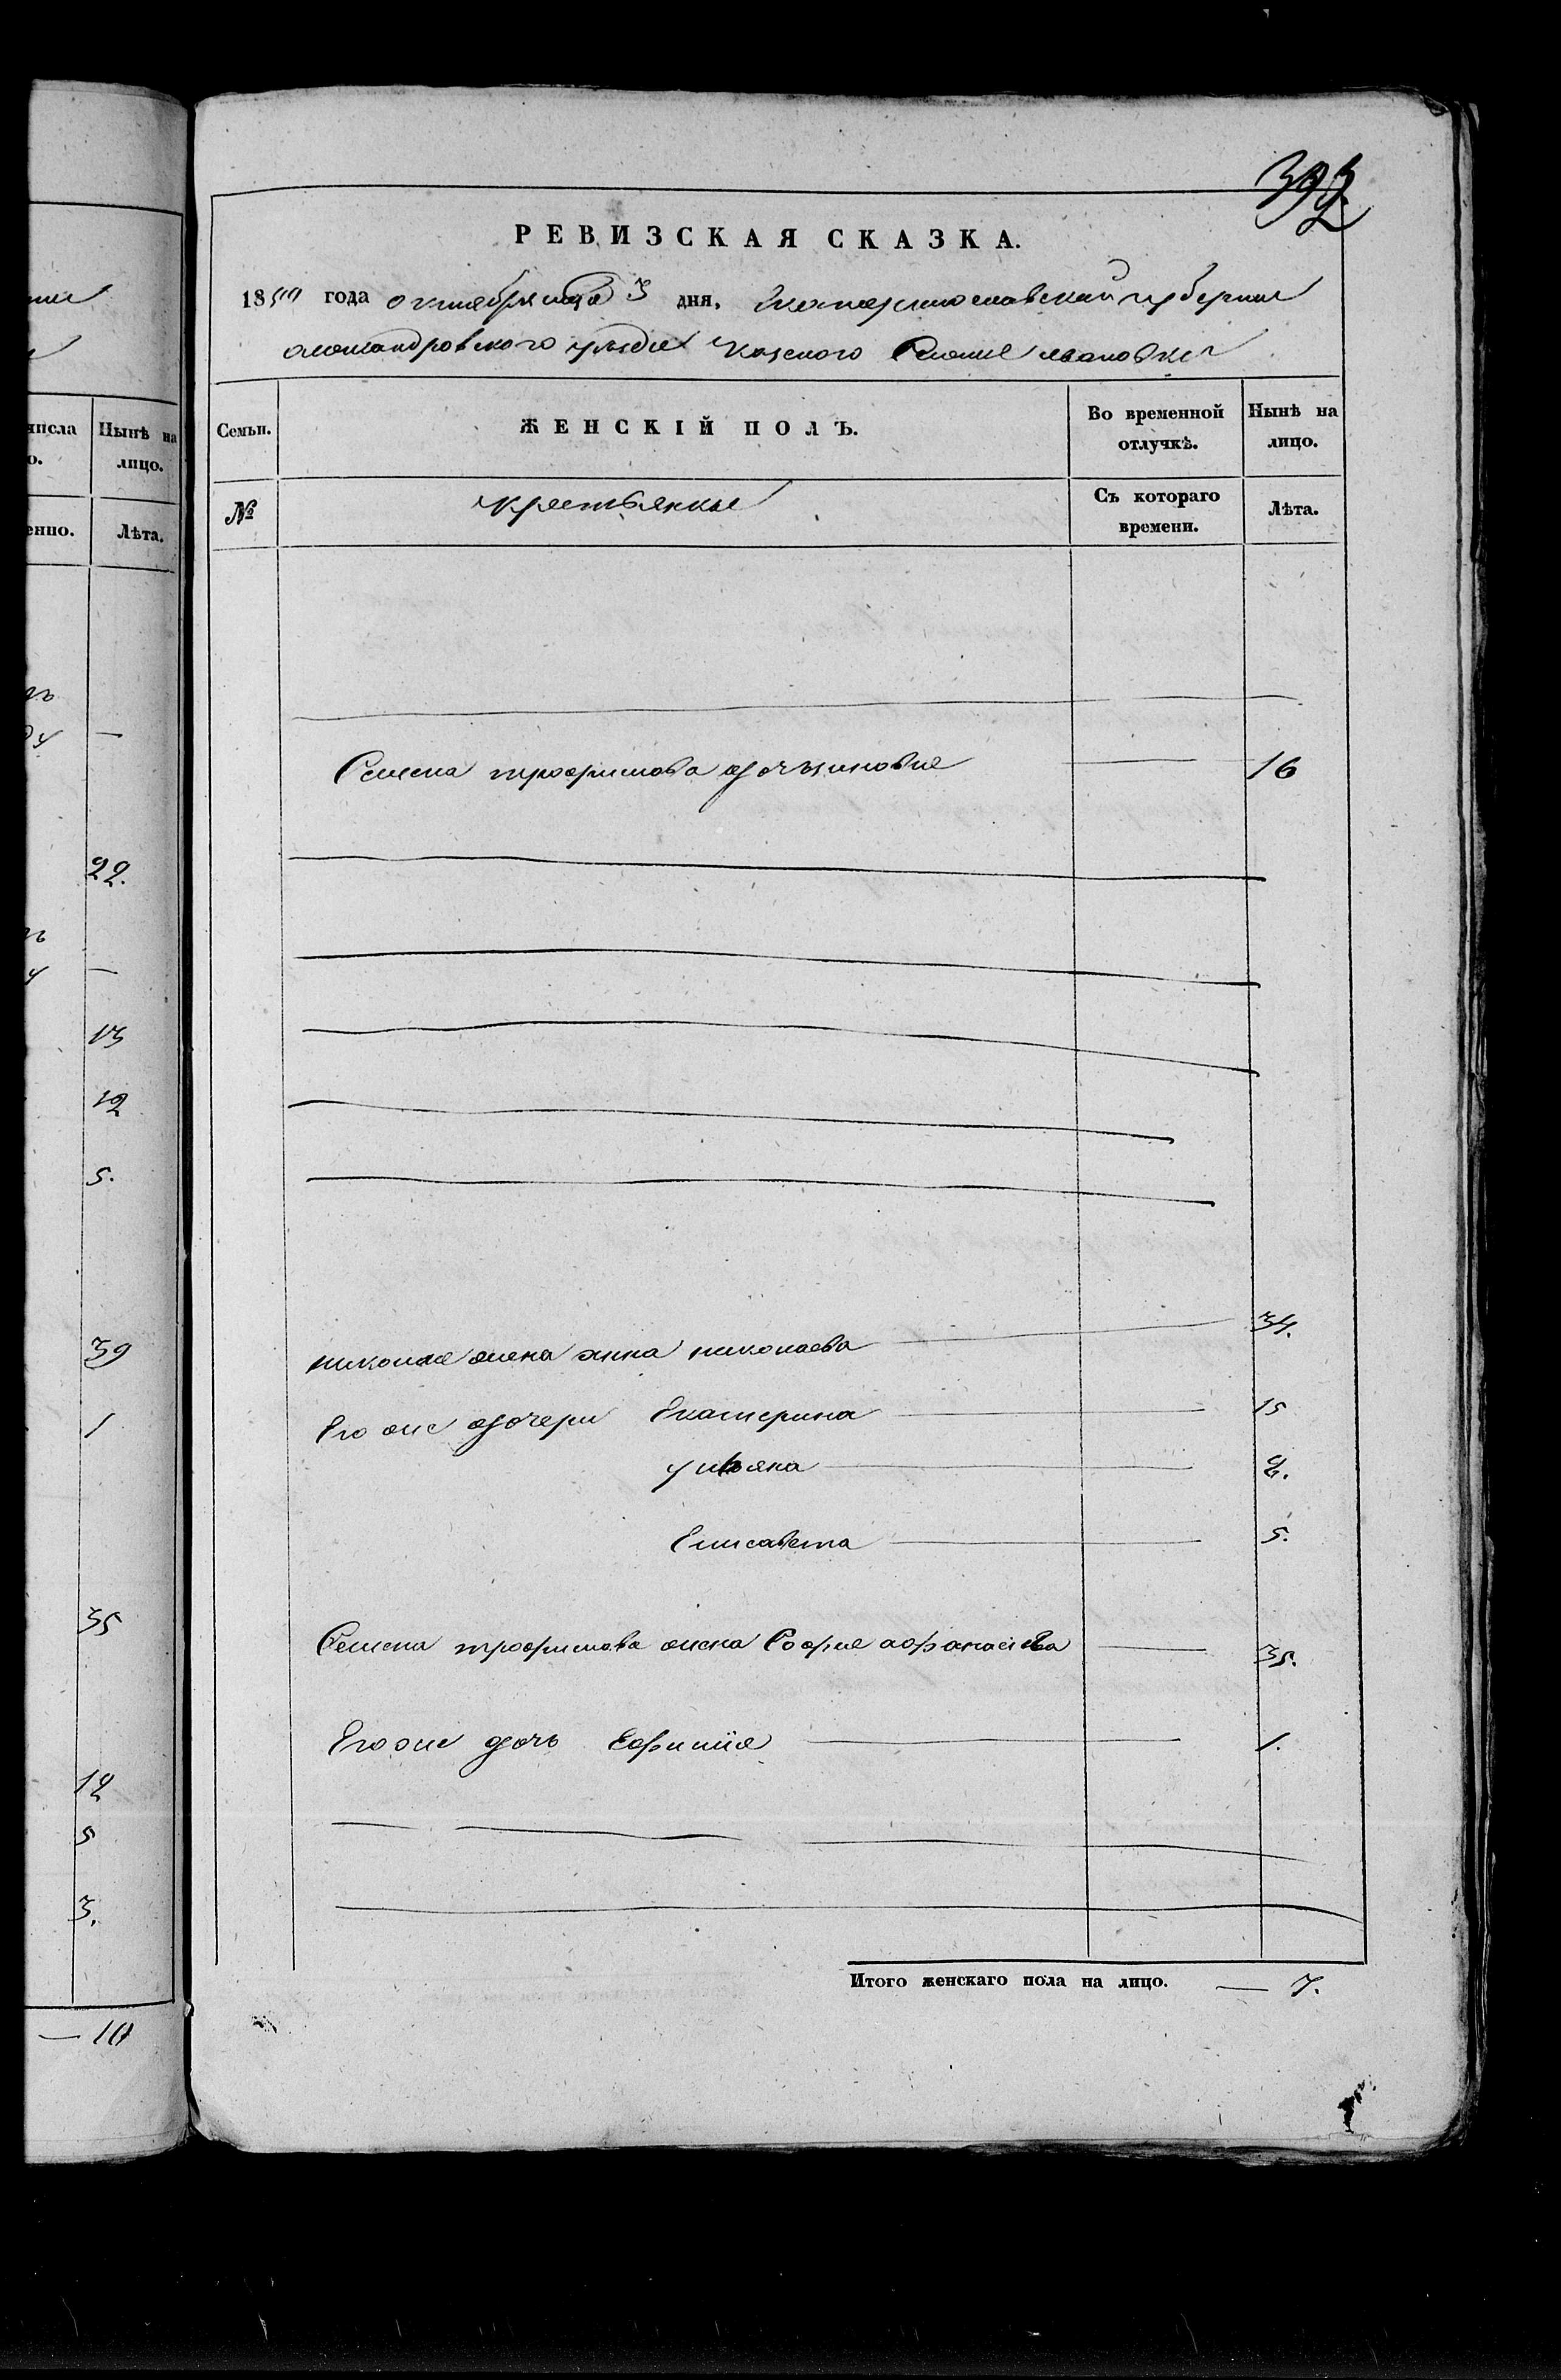 нъ
22.
нъ
13
12
5.
39
1
35
12
5
3.
— 10
числа
о.
Нынѣ на
лицо.
Лѣта.
РЕВИЗСКАЯ СКАЗКА.
1850 года октября 3 дня, Екатеринославской губернии
александровского уезда казеного Селения ивановки
Семьи.
ЖЕНСКІЙ ПОЛЪ.
Во временной
отлучкѣ.
Нынѣ на
лицо.
№
крестьянки
Съ котораго
времени.
Лѣта.
Семена трофимова дочь 16
николая жена анна николаева 34.
Его же дочери Екатерина 15
ульяна
Елисавета 5.
Семена трофимова жена София афанасиева 35.
Его же дочь Ефимия 1.
Итого женскаго пола на лицо. — 7.